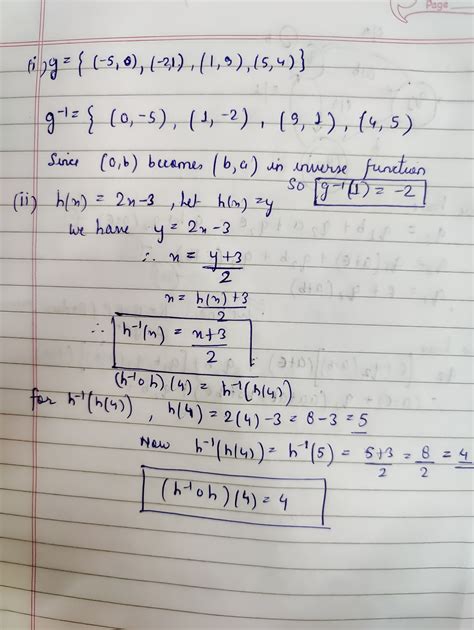 Page
(i) g = { (-5, 0), (-2,1), (1, 9), (5, 4)}
g⁻¹ = { (0, -5), (1, -2), (9, 1), (4, 5)
Since (a,b) becomes (b,a) in inverse function
So g⁻¹(1) = -2
(ii) h(x) = 2x-3, let h(x) = y
we have y = 2x-3
∴ x = y+3/2
x = h(x)+3/2
∴ h⁻¹(x) = x+3/2
(h⁻¹oh)(4) = h⁻¹(h(4))
for h⁻¹(h(4)), h(4) = 2(4)-3 = 8-3 = 5
Now h⁻¹(h(4)) = h⁻¹(5) = 5+3/2 = 8/2 = 4
(h⁻¹oh)(4) = 4